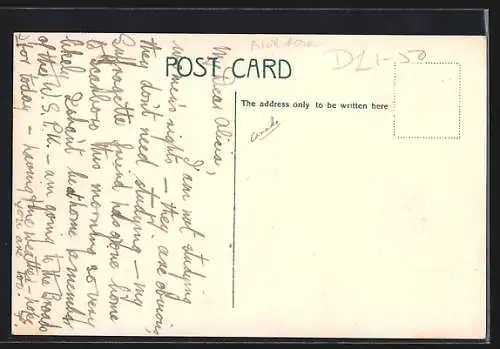 POST CARD
The address only to be written here
Canada
D21-50
My Dear Alicia,
I am not studying
women's right — they are obvious,
they don't need studying — my
Suffragette friend has gone home
to Scarboro this morning so very
likely I shan't be at home a member
of the W.S.P.U. — am going to the Broads
for today — having fine weather — hope
you are too.